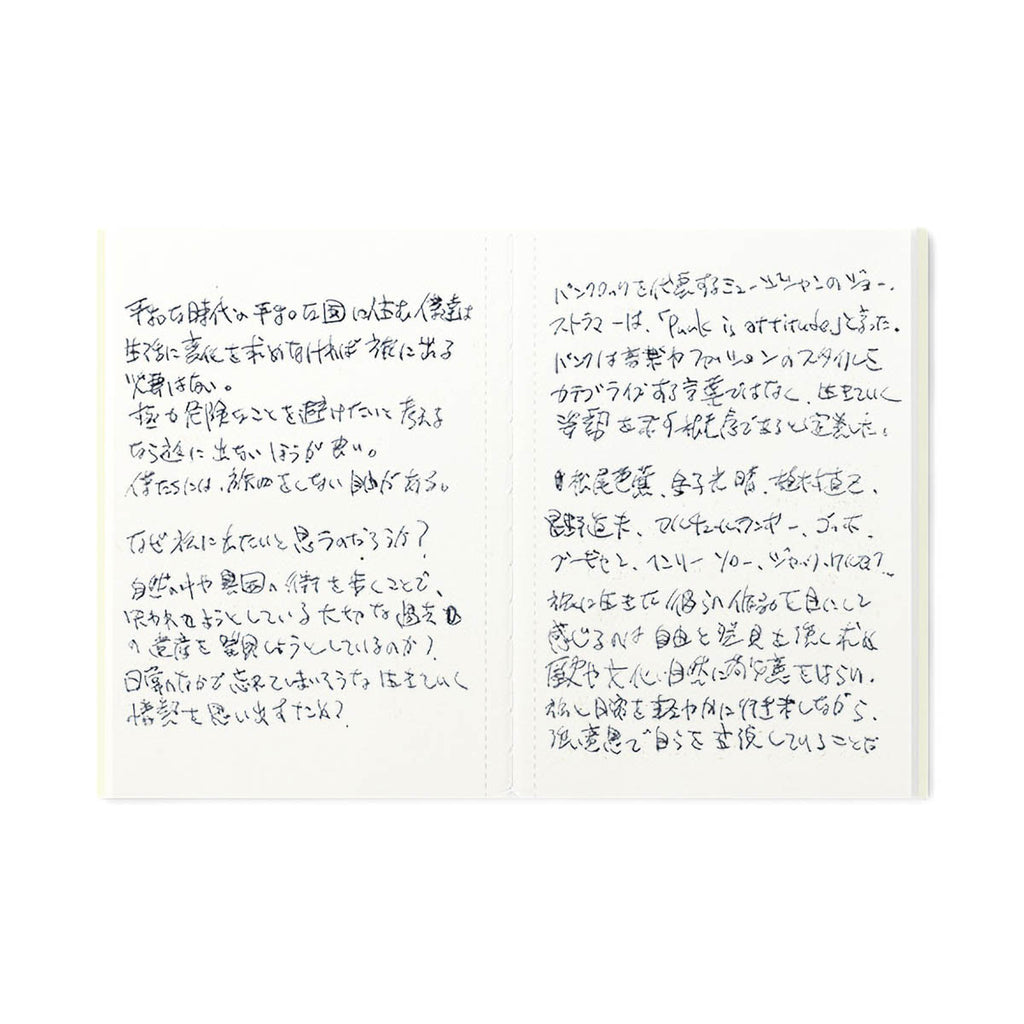 平和な時代の平和な国に住む僕達は
生活に変化を求めなければ旅に出る
必要はない。
極力危険なことを避けたいと考える
なら旅に出ないほうが良い。
僕たちには、旅をしない自由がある。
なぜ旅に出たいと思うのだろうか？
自然の中や異国の街を歩くことで、
失われようとしている大切な過去
の遺産を発見しようとしているのか？
日常のなかで忘れてしまいそうな生きていく
情熱を思い出すため？
パンクロックを代表するミュージシャンのジョー・
ストラマーは、「Punk is attitude」と言った。
パンクは音楽やファッションのスタイルを
カテゴライズする言葉ではなく、生きていく
姿勢を示す であると定義した。
松尾芭蕉、金子光晴、植村直己、
星野道夫、アルチュールランボー、ゴッホ
ブーゼヤン、ヘンリー ソロー、ジャック
旅に生きた彼らの作品を目にして
感じるのは自由と発見を強く求め
歴史や文化、自然に敬意をはらい、
旅と日常を軽やかに行き来しながら、
強い意思で自らを表現していることだ